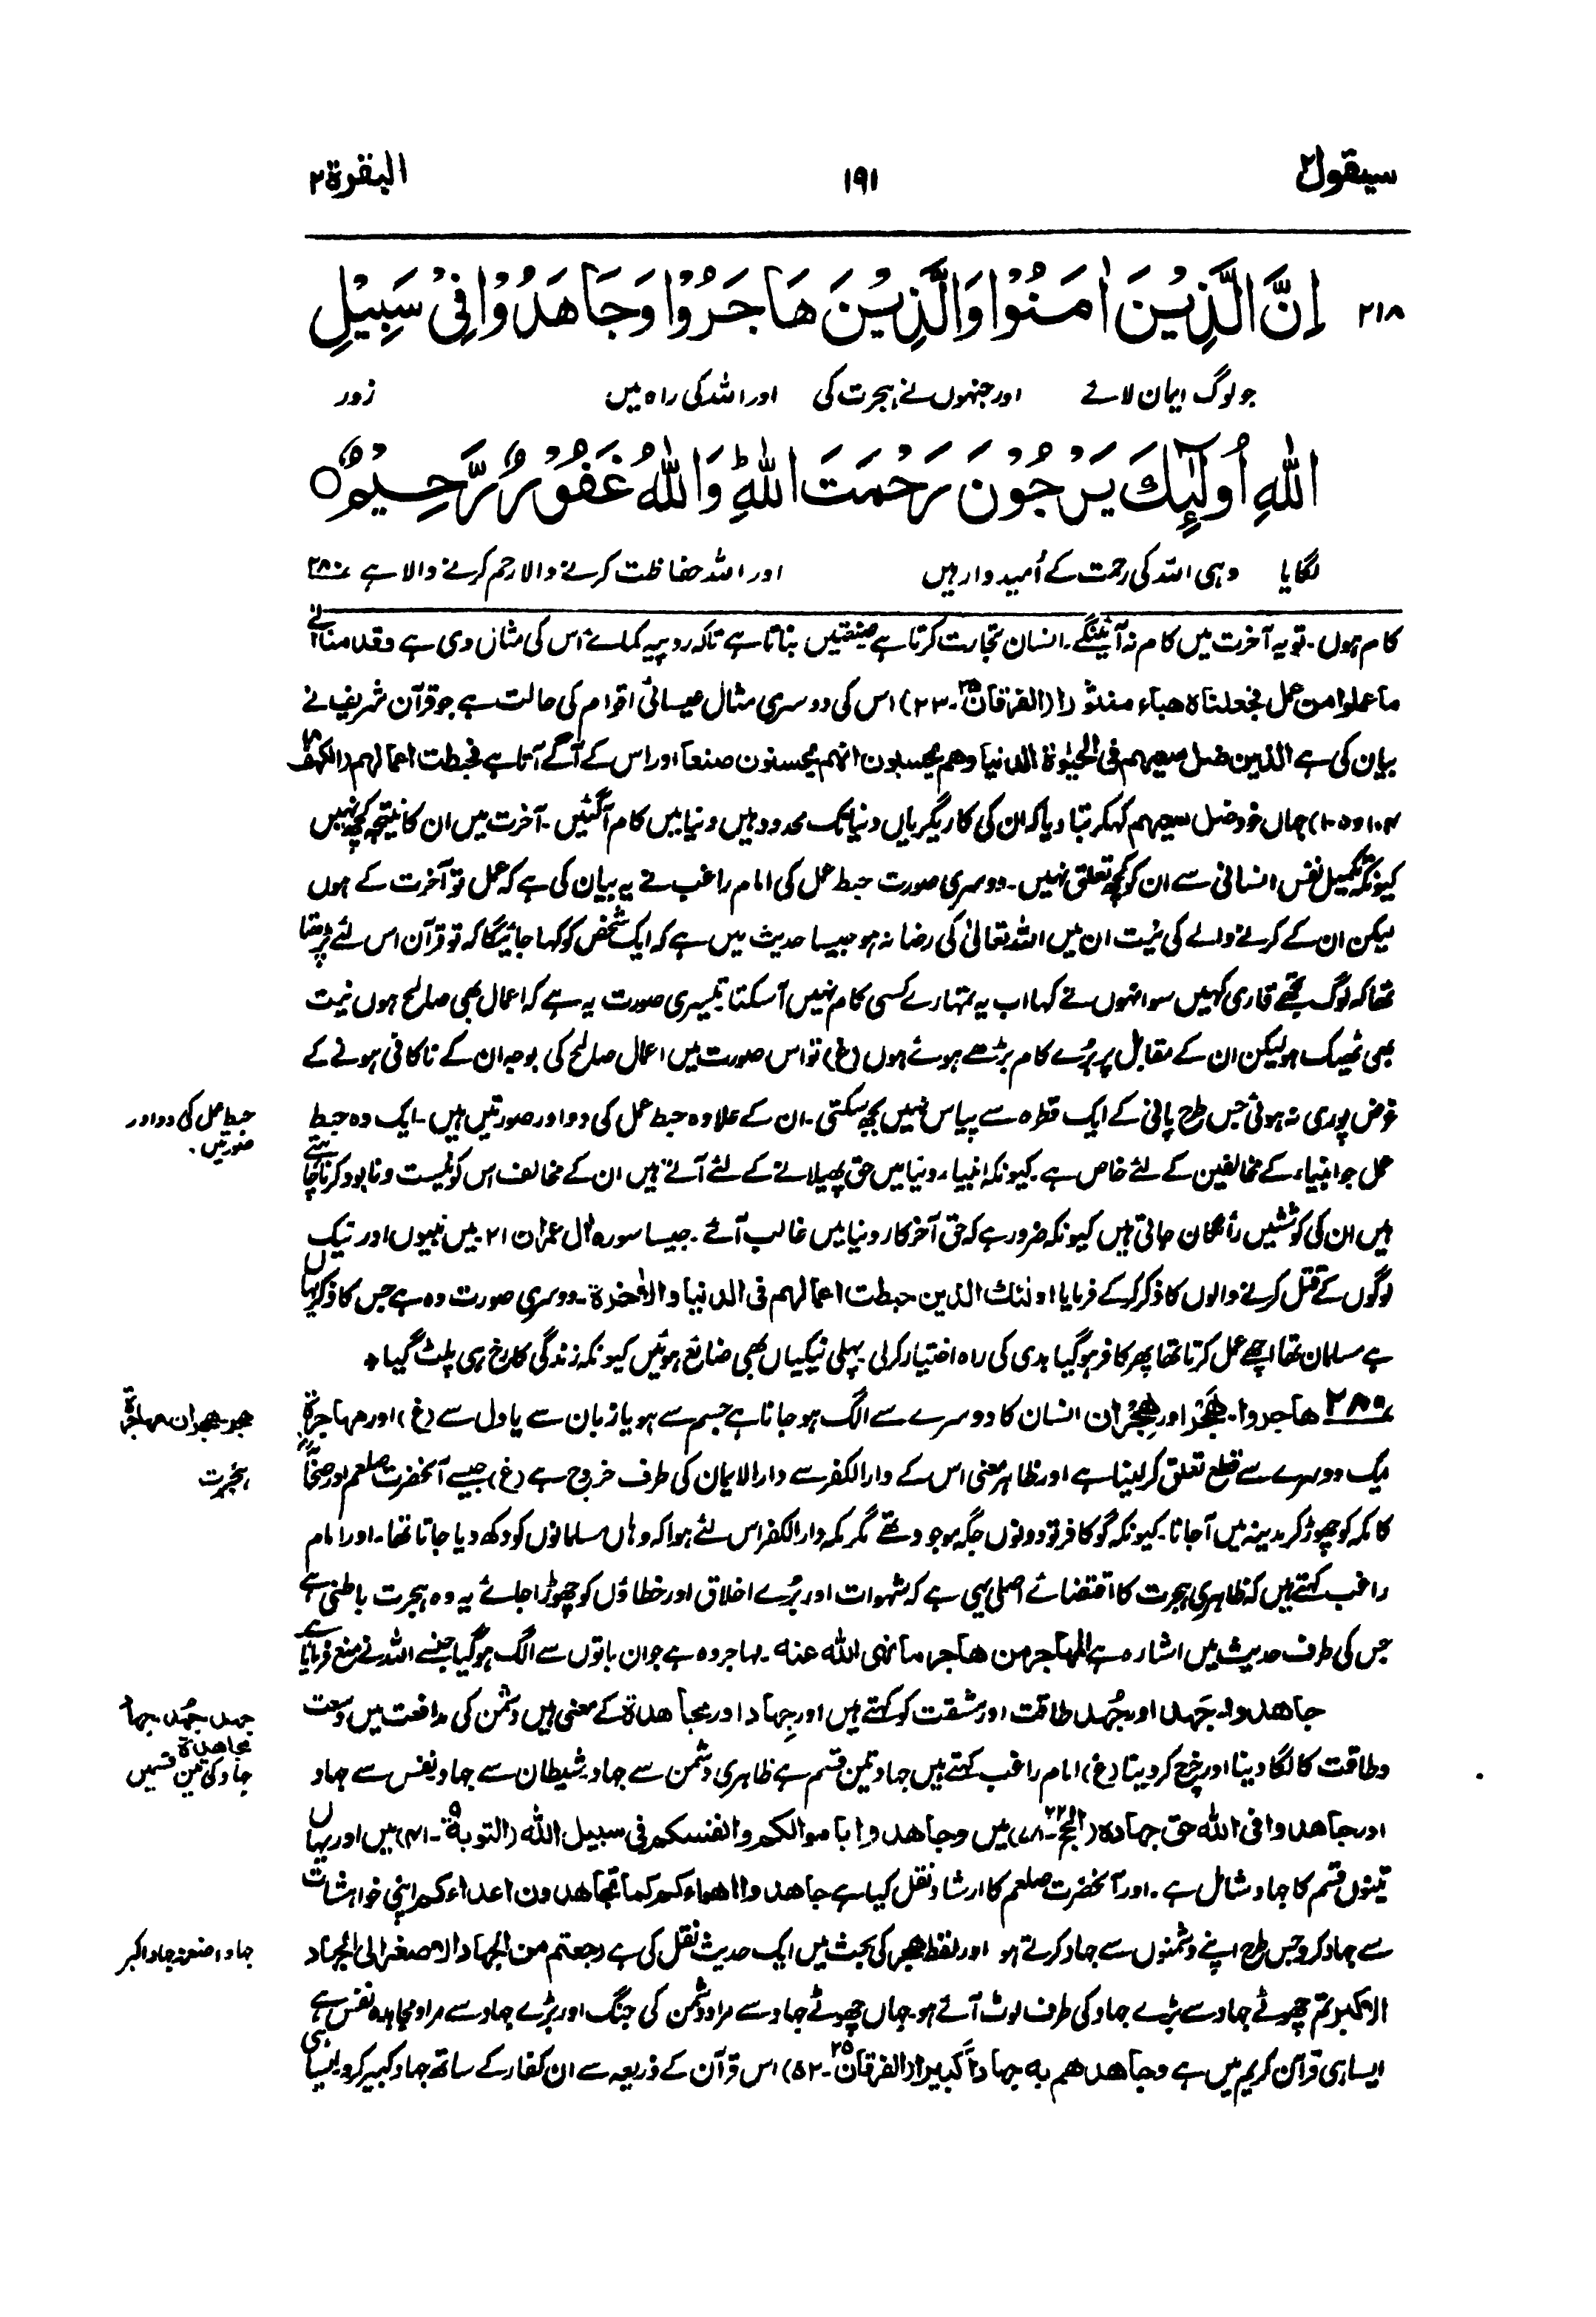 سیقول ۲
۱۹۱
البقرة ۲
۲۱۸ اِنَّ الَّذِیْنَ اٰمَنُوْا وَالَّذِیْنَ هَاجَرُوْا وَجَاهَدُوْا فِیْ سَبِیْلِ
جو لوگ ایمان لائے اور جنہوں نے ہجرت کی اور اللہ کی راہ میں زور
اللّٰهِ اُولٰٓئِكَ یَرْجُوْنَ رَحْمَتَ اللّٰهِ ؕ وَاللّٰهُ غَفُوْرٌ رَّحِیْمٌ ○
لگایا وہی اللہ کی رحمت کے اُمیدوار ہیں اور اللہ حفاظت کرنے والا رحم کرنے والا ہے ۲۸۰
کام ہوں۔ تو یہ آخرت میں کام نہ آئینگے۔ انسان تجارت کرتا ہے صنعتیں بناتا ہے تاکہ روپیہ کمائے اُس کی مثال دی ہے وقدمنا الی
ما عملوا من عمل فجعلناه هباء منثورا (الفرقان ۲۵۔۲۳) اس کی دوسری مثال عیسائی اقوام کی حالت ہے جو قرآن شریف نے
بیان کی ہے الذین ضل سعیهم فی الحیٰوة الدنیا وهم یحسبون انهم یحسنون صنعا اور اس کے آگے آتا ہے فحبطت اعمالهم (الکهف ۱۸
۱۰۴و۱۰۵) جہاں خود ضل سعیهم کہکر بتا دیا کہ ان کی کاریگریاں دنیا تک محدود ہیں دنیا میں کام آگئیں۔ آخرت میں ان کا نتیجہ کچھ نہیں
کیونکہ تکمیل نفس انسانی سے ان کو کچھ تعلق نہیں۔ دوسری صورت حبط عمل کی امام راغب نے یہ بیان کی ہے کہ عمل تو آخرت کے ہوں
لیکن ان کے کرنے والے کی نیت ان میں اللہ تعالیٰ کی رضا نہ ہو جیسا حدیث میں ہے کہ ایک شخص کو کہا جائیگا کہ تو قرآن اس لئے پڑھتا
تھا کہ لوگ تجھے قاری کہیں سو انہوں نے کہا اب یہ تمہارے کسی کام نہیں آسکتا تیسری صورت یہ ہے کہ اعمال بھی صالح ہوں نیت
بھی ٹھیک ہو لیکن ان کے مقابل پر بُرے کام بڑھے ہوئے ہوں (غ) تو اس صورت میں اعمال صالح کی بوجہ ان کے ناکافی ہونے کے
غرض پوری نہ ہوئی جس طرح پانی کے ایک قطرہ سے پیاس نہیں بجھ سکتی۔ ان کے علاوہ حبط عمل کی دو اور صورتیں ہیں۔ ایک وہ حبط
حبط عمل کی دو اور صورتیں۔
عمل جو انبیاء کے مخالفین کے لئے خاص ہے۔ کیونکہ انبیاء دنیا میں حق پھیلانے کے لئے آتے ہیں ان کے مخالف اس کو نیست و نابود کرنا چاہتے
ہیں ان کی کوششیں رائگان جاتی ہیں کیونکہ ضرور ہے کہ حق آخر کار دنیا میں غالب آئے۔ جیسا سورہ اٰل عمران ۲۱ میں نبیوں اور نیک
لوگوں کے قتل کرنے والوں کا ذکر کرکے فرمایا اولئك الذین حبطت اعمالهم فی الدنیا والاٰخرة۔ دوسری صورت وہ ہے جس کا ذکر یہاں
ہے مسلمان تھا اچھے عمل کرتا تھا پھر کافر ہوگیا بدی کی راہ اختیار کرلی پہلی نیکیاں بھی ضائع ہوئیں کیونکہ زندگی کا رخ ہی پلٹ گیا ٭
۲۸۰ هاجروا۔ هَجْر اور هِجْران انسان کا دوسرے سے الگ ہو جانا ہے جسم سے ہو یا زبان سے یا دل سے (غ) اور مهاجرة
هجر۔ هجران۔ مهاجرة
ایک دوسرے سے قطع تعلق کر لینا ہے اور ظاہر معنی اس کے دارالکفر سے دارالایمان کی طرف خروج ہے (غ) جیسے آنحضرت صلعم اور صحابہ
ہجرت
کا مکہ کو چھوڑ کر مدینہ میں آجانا۔ کیونکہ گو کافر تو دونوں جگہ موجود تھے مگر مکہ دارالکفر اس لئے ہوا کہ وہاں مسلمانوں کو دکھ دیا جاتا تھا۔ اور امام
راغب کہتے ہیں کہ ظاہری ہجرت کا اقتضائے اصلی یہی ہے کہ شہوات اور بُرے اخلاق اور خطاؤں کو چھوڑا جائے یہ وہ ہجرت باطنی ہے
جس کی طرف حدیث میں اشارہ ہے المهاجر من هاجر ما نهی الله عنه۔ مہاجر وہ ہے جو ان باتوں سے الگ ہوگیا جنسے اللہ نے منع فرمایا ہے
جاهدوا۔ جَهد اور جُهد طاقت اور مشقت کو کہتے ہیں اور جِهاد اور مجاهدة کے معنی ہیں دشمن کی مدافعت میں وسعت
جَهد جُهد جهاد مجاهدة
وطاقت کا لگا دینا اور خرچ کر دینا (غ) امام راغب کہتے ہیں جہاد تین قسم ہے ظاہری دشمن سے جہاد۔ شیطان سے جہاد۔ نفس سے جہاد
جہاد کی تین قسمیں
اور جاهدوا فی الله حق جهاده (الحج ۲۲۔۷۸) میں وجاهدوا باموالکم وانفسکم فی سبیل الله (التوبة ۹۔۴۱) میں اور یہاں
تینوں قسم کا جہاد شامل ہے۔ اور آنحضرت صلعم کا ارشاد نقل کیا ہے جاهدوا اهواءکم کما تجاهدون اعداءکم اپنی خواہشات
سے جہاد کرو جس طرح اپنے دشمنوں سے جہاد کرتے ہو اور لفظ هجر کی بحث میں ایک حدیث نقل کی ہے رجعتم من الجهاد الاصغر الی الجهاد
جہاد اصغر جہاد اکبر
الاکبر تم چھوٹے جہاد سے بڑے جہاد کی طرف لوٹ آئے ہو۔ جہاں چھوٹے جہاد سے مراد دشمن کی جنگ اور بڑے جہاد سے مراد مجاہدہ نفس ہے
ایسا ہی قرآن کریم میں ہے وجاهدهم به جهاداً کبیرا (الفرقان ۲۵۔۵۲) اس قرآن کے ذریعہ سے ان کفار کے ساتھ جہاد کبیر کرو۔ ایسا ہی